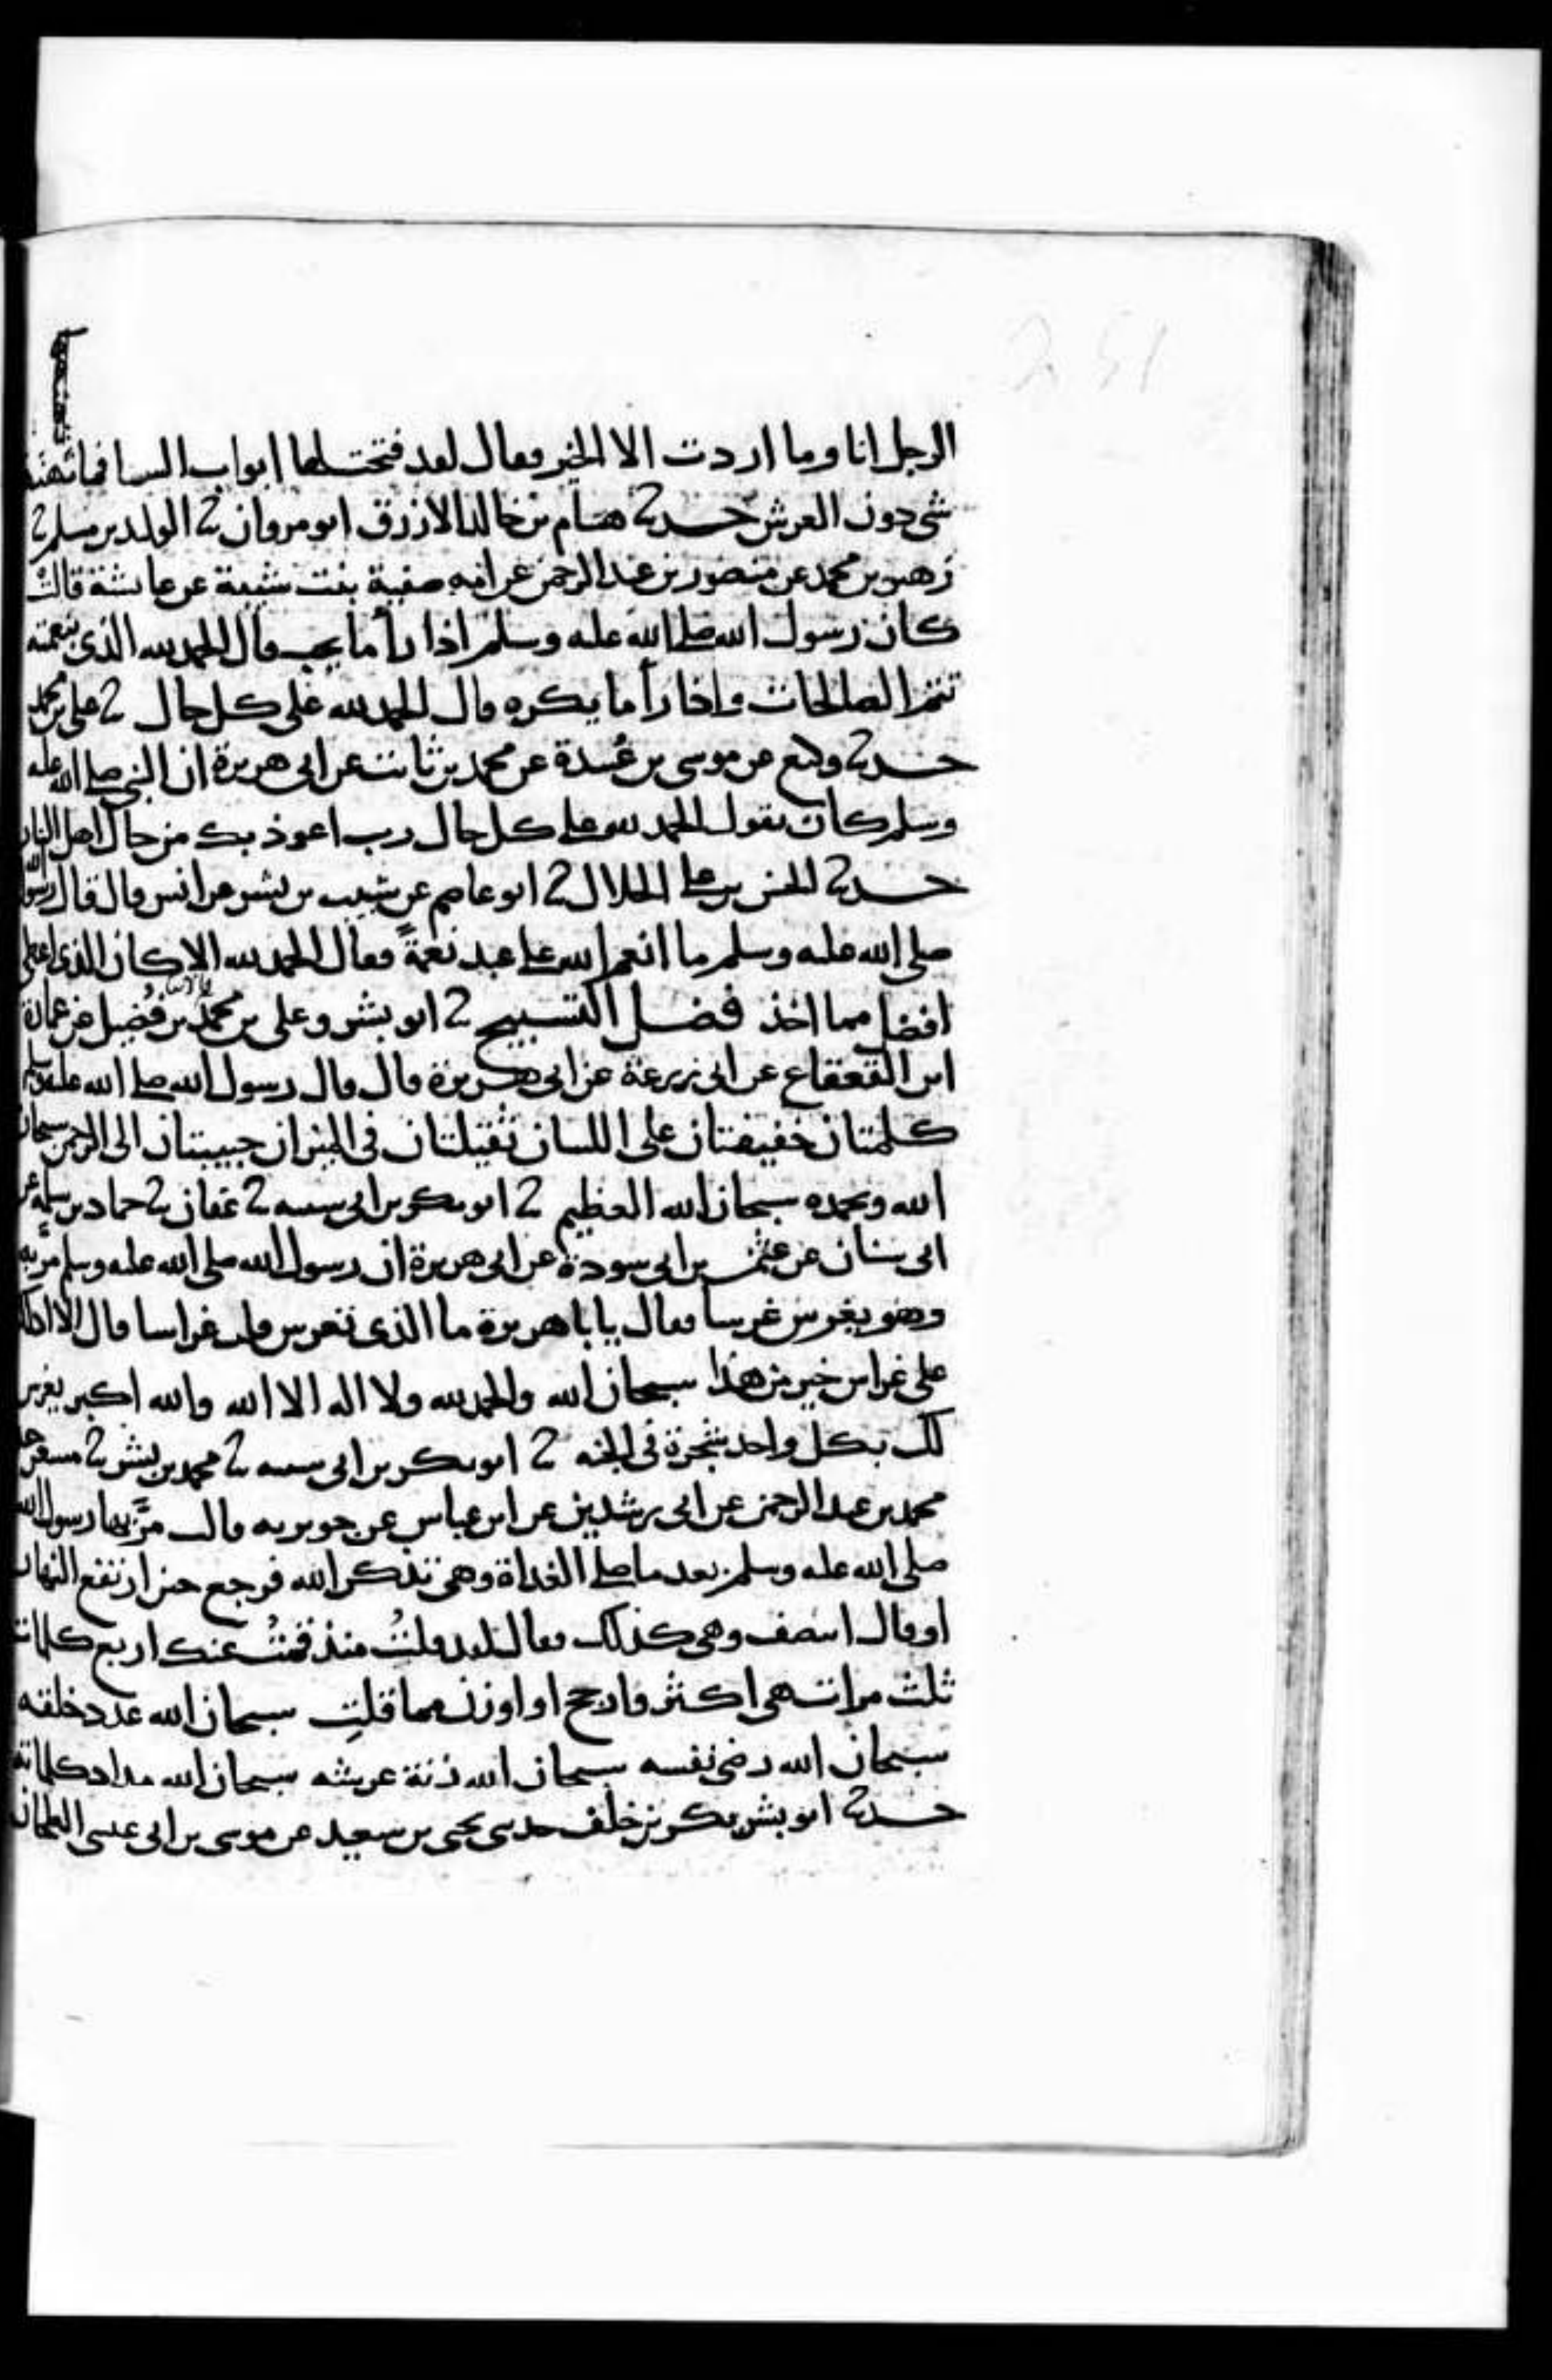 الرجل انا وما اردت الا الخير فقال لقد فتحت لها ابواب السما فما نهنهها
شي دون العرش حدثنا هشام بن خالد الازرق ابو مروان ثنا الوليد بن مسلم ثنا
زهير بن محمد عن منصور بن عبد الرحمن عن امه صفية بنت شيبة عن عايشة قالت
كان رسول الله صلى الله عليه وسلم اذا رأ ما يحب قال الحمد لله الذي بنعمته
تتم الصالحات واذا رأ ما يكره قال الحمد لله على كل حال ثنا علي بن محمد
حدثنا وكيع عن موسى بن عُبيدة عن محمد بن ثابت عن ابي هريرة ان النبي صلى الله عليه
وسلم كان يقول الحمد لله على كل حال رب اعوذ بك من حال اهل النار
حدثنا الحسن بن علي الخلال ثنا ابو عاصم عن شبيب بن بشر عن انس قال قال رسول الله
صلى الله عليه وسلم ما انعم الله على عبد نعمةً فقال الحمد لله الا كان الذي اعطى
افضل مما اخذ فضل التسبيح ثنا ابو بشر وعلي بن محمد بن فُضيل عن عمارة
ابن القعقاع عن ابي زرعة عن ابي هريرة قال قال رسول الله صلى الله عليه وسلم
كلمتان خفيفتان على اللسان ثقيلتان في الميزان حبيبتان الى الرحمن سبحان
الله وبحمده سبحان الله العظيم ثنا ابو بكر بن ابي شيبه ثنا عفان ثنا حماد بن سلمة عن
ابي سنان عن عثمن بن ابي سودة عن ابي هريرة ان رسول الله صلى الله عليه وسلم مرّ به
وهو يغرس غرسا فقال يا با هريرة ما الذي تغرس قلت غراسا قال الا ادلك
على غراس خير من هذا سبحان الله والحمد لله ولا اله الا الله والله اكبر يغرس
لك بكل واحد شجرة في الجنه ثنا ابو بكر بن ابي شيبه ثنا محمد بن بشر ثنا مسعر حد
محمد بن عبد الرحمن عن ابي رشدين عن ابن عباس عن جويريه قالت مرَّ بها رسول الله
صلى الله عليه وسلم بعد ما صلى الغداة وهي تذكر الله فرجع حين ارتفع النهار
او قال انتصف وهي كذلك فقال لقد قلتُ منذ قمتُ عنك اربع كلمات
ثلث مرات هي اكثر وارجح او اوزن مما قلتِ سبحان الله عدد خلقه
سبحان الله رضى نفسه سبحان الله زنة عرشه سبحان الله مداد كلماته
حدثنا ابو بشر بكر بن خلف حدثني يحيى بن سعيد عن موسى بن ابي عيسى الطحان